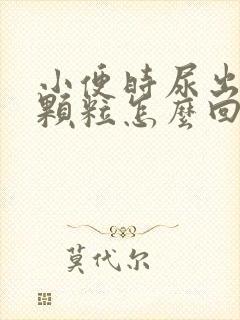 小便時尿出
顆粒怎麼回
莫代尔